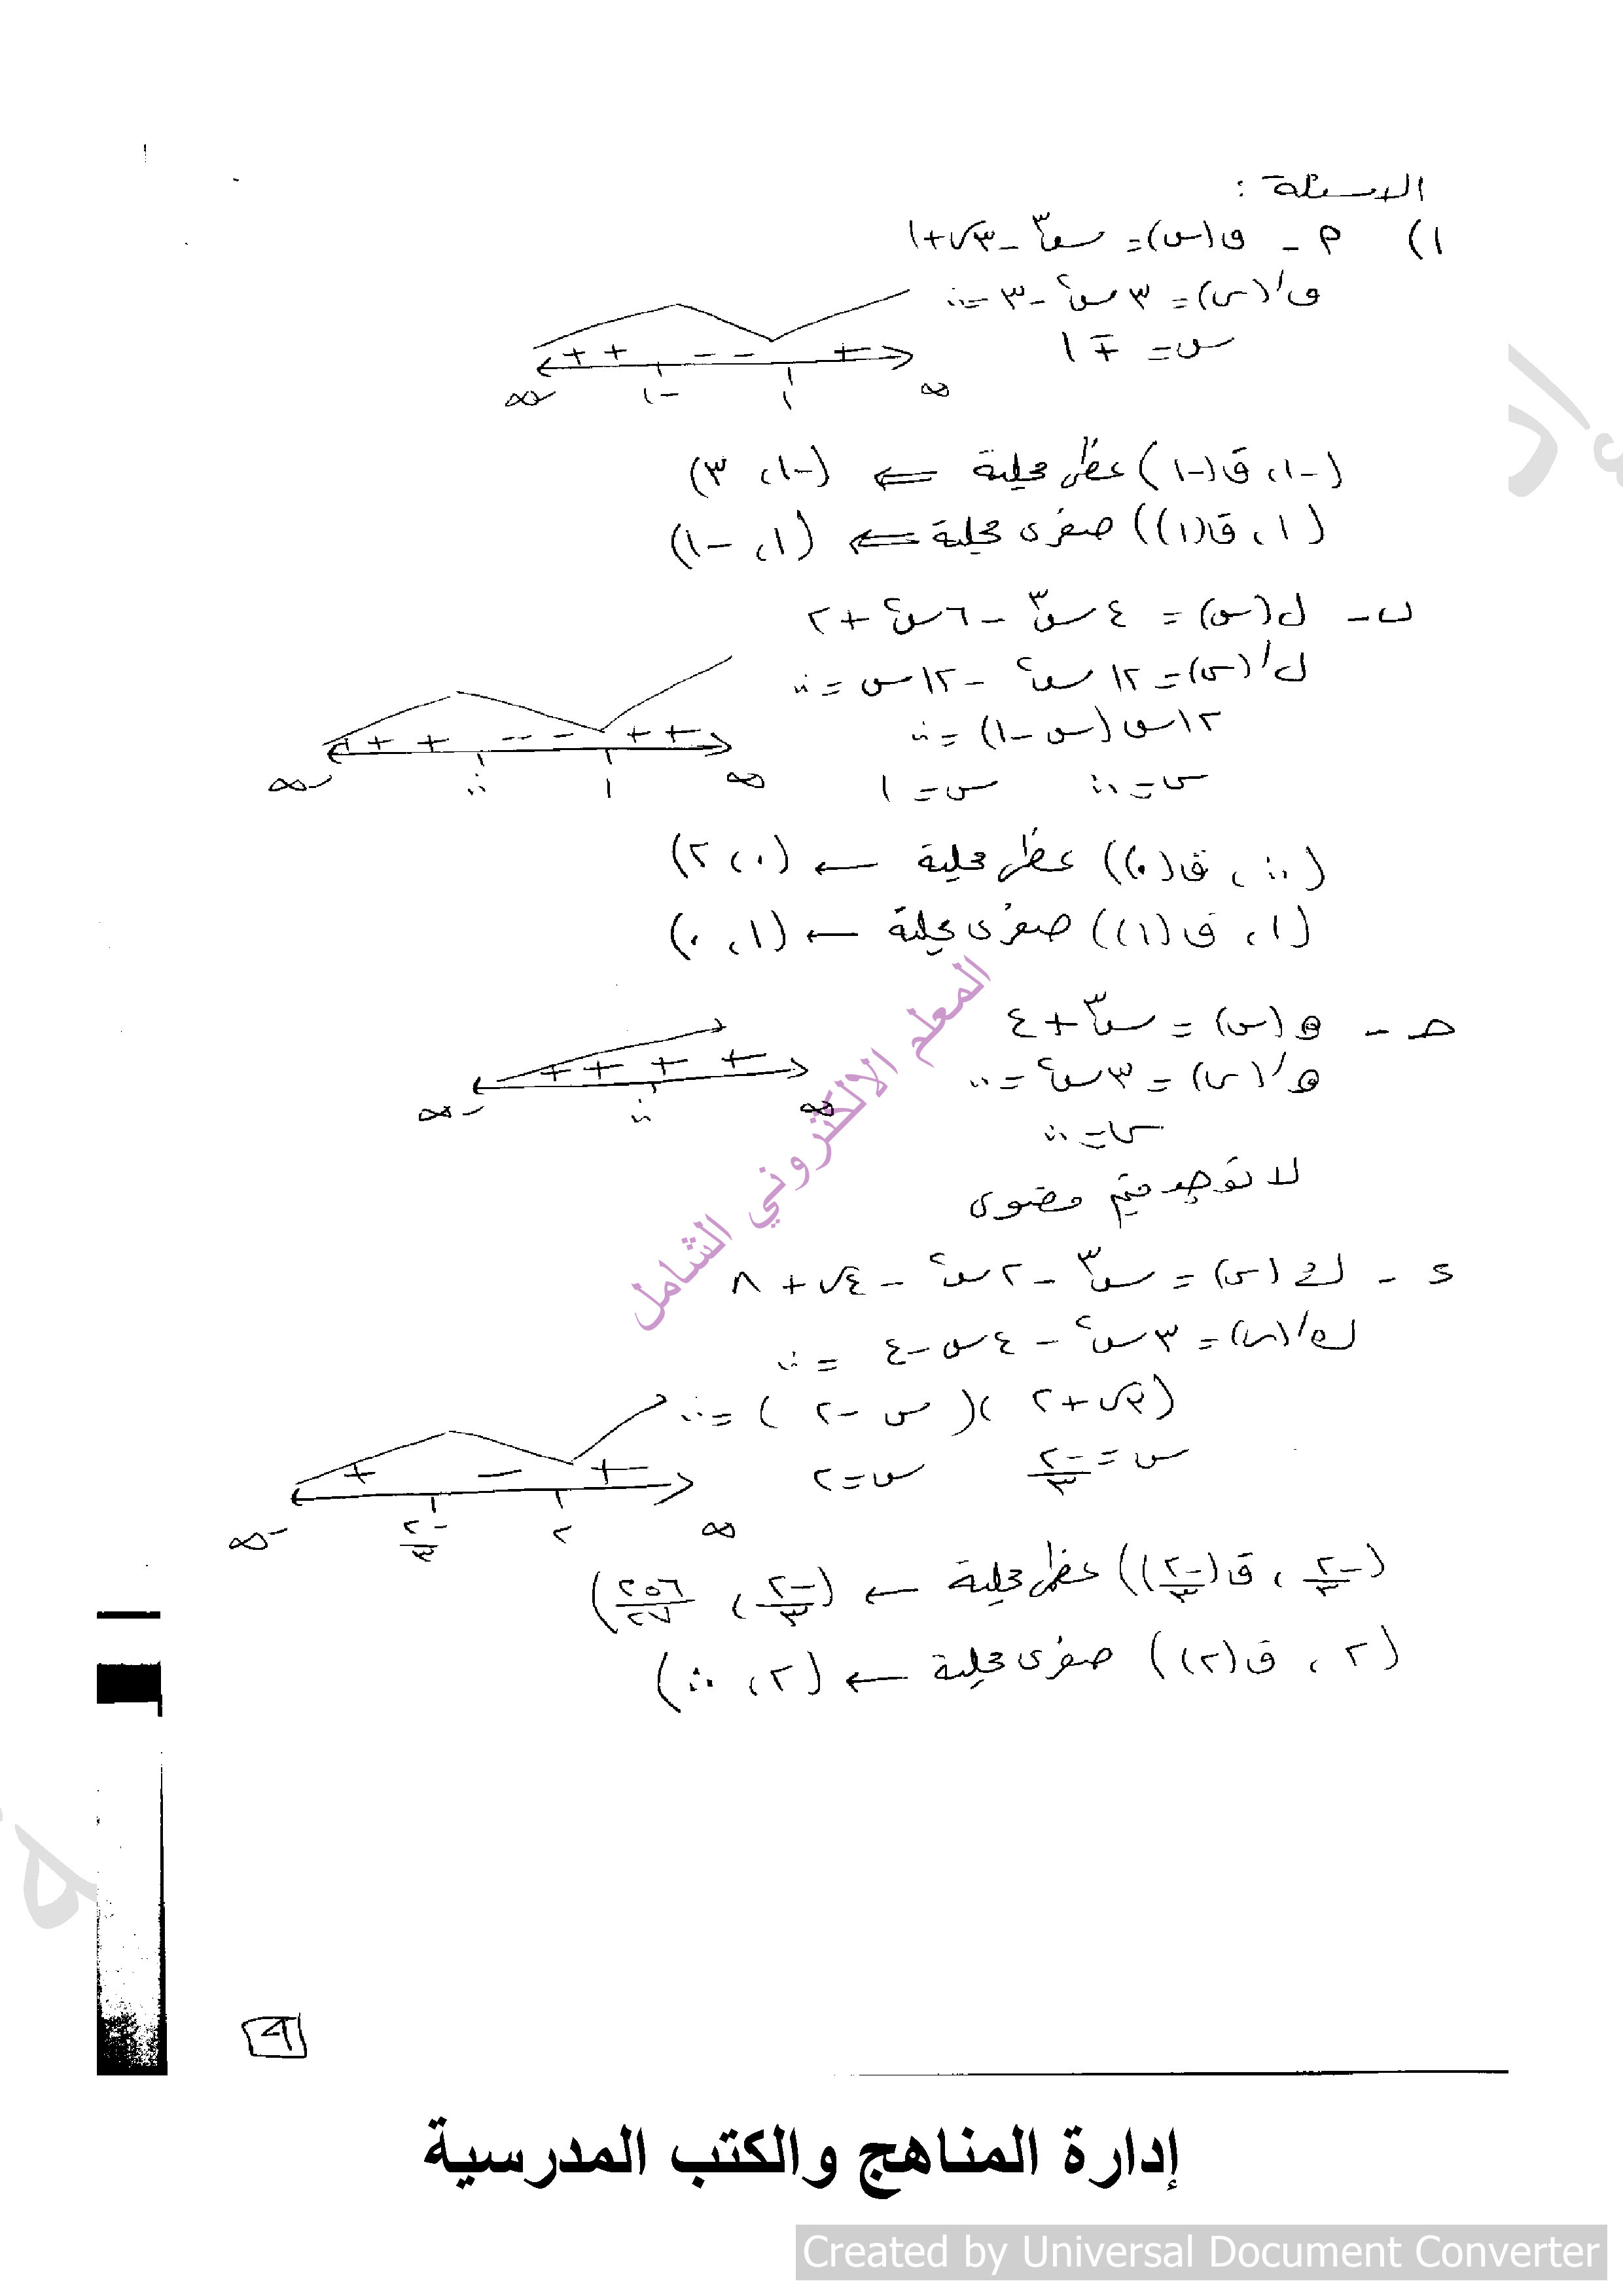 الاسئلة :
١) م - ق(س) = س٣ - ٣س + ١
ق/(س) = ٣س٢ - ٣ = ٠
س = ∓ ١
+ + - - +
-∞ -١ ١ ∞
(-١، ق(-١) عظمى محلية ⇐ (-١، ٣)
(١، ق(١)) صغرى محلية ⇐ (١، -١)
ب- ل(س) = ٤س٣ - ٦س٢ + ٢
ل/(س) = ١٢س٢ - ١٢س = ٠
١٢س(س - ١) = ٠
+ + + - - - + +
س = ٠ س = ١
-∞ ٠ ١ ∞
(٠، ق(٠)) عظمى محلية ← (٠، ٢)
(١، ق(١)) صغرى محلية ← (١، ٠)
حـ - هـ(س) = س٣ + ٤
هـ/(س) = ٣س٢ = ٠
+ + + +
-∞ ٠ ∞
س = ٠
لا توجد قيم قصوى
د - ك(س) = س٣ - ٢س٢ - ٤س + ٨
ك/(س) = ٣س٢ - ٤س - ٤ = ٠
(٣س + ٢)(س - ٢) = ٠
س = -٢/٣ س = ٢
+ - +
-∞ -٢/٣ ٢ ∞
(-٢/٣، ق(-٢/٣)) عظمى محلية ← (-٢/٣، ٢٥٦/٢٧)
(٢، ق(٢)) صغرى محلية ← (٢، ٠)
المعلم الالكتروني الشامل
إدارة المناهج والكتب المدرسية
Created by Universal Document Converter